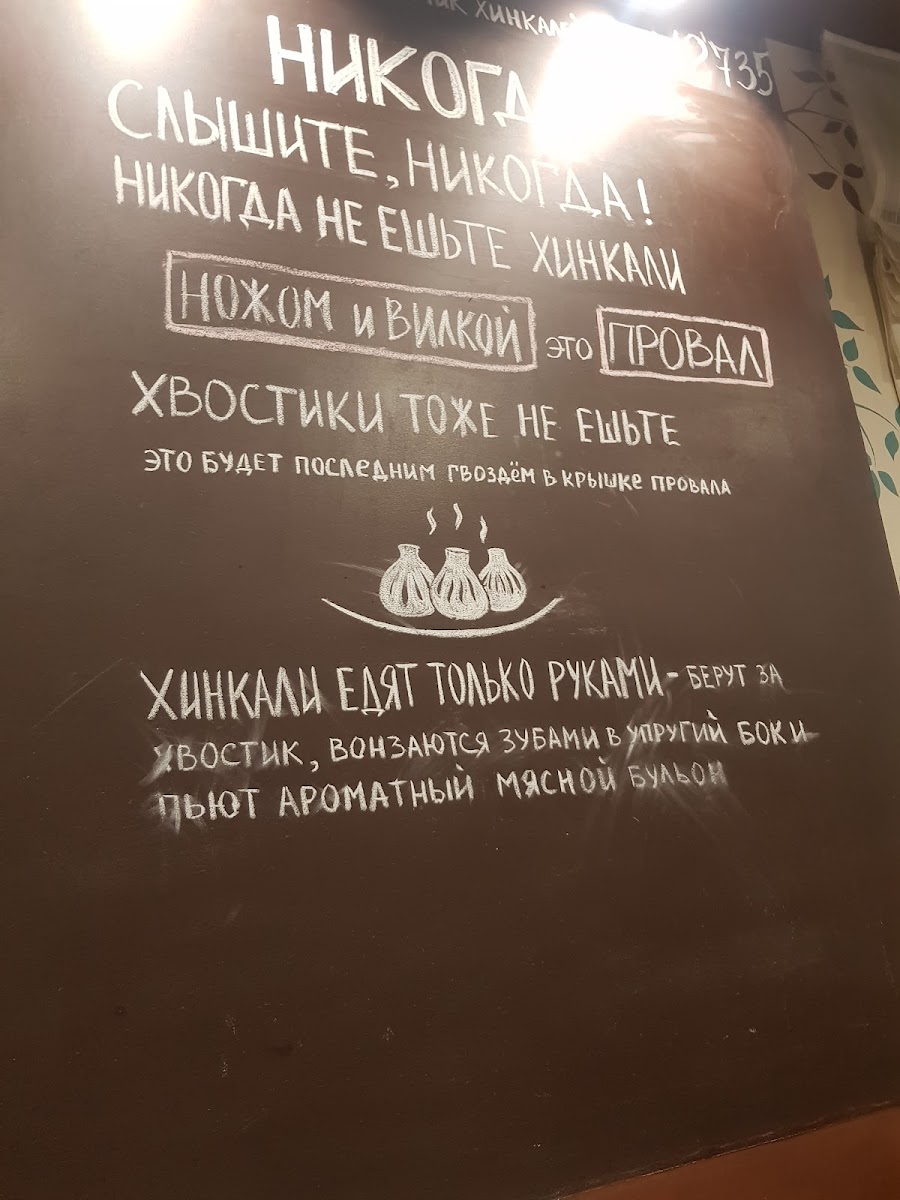 ХИНКАЛЕЙ
735
НИКОГДА
СЛЫШИТЕ, НИКОГДА!
НИКОГДА НЕ ЕШЬТЕ ХИНКАЛИ
НОЖОМ и ВИЛКОЙ ЭТО ПРОВАЛ
ХВОСТИКИ ТОЖЕ НЕ ЕШЬТЕ
ЭТО БУДЕТ ПОСЛЕДНИМ ГВОЗДЁМ В КРЫШКЕ ПРОВАЛА
ХИНКАЛИ ЕДЯТ ТОЛЬКО РУКАМИ - БЕРУТ ЗА
ХВОСТИК, ВОНЗАЮТСЯ ЗУБАМИ В УПРУГИЙ БОК И
ПЬЮТ АРОМАТНЫЙ МЯСНОЙ БУЛЬОН